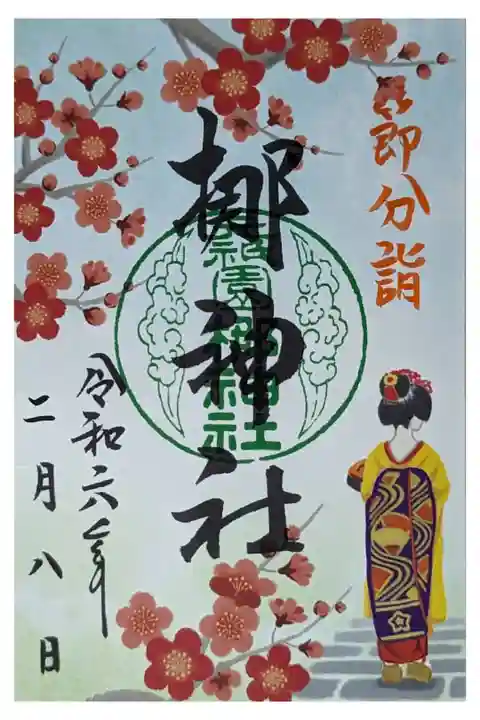 節分詣
梛神社
令和六年
二月八日